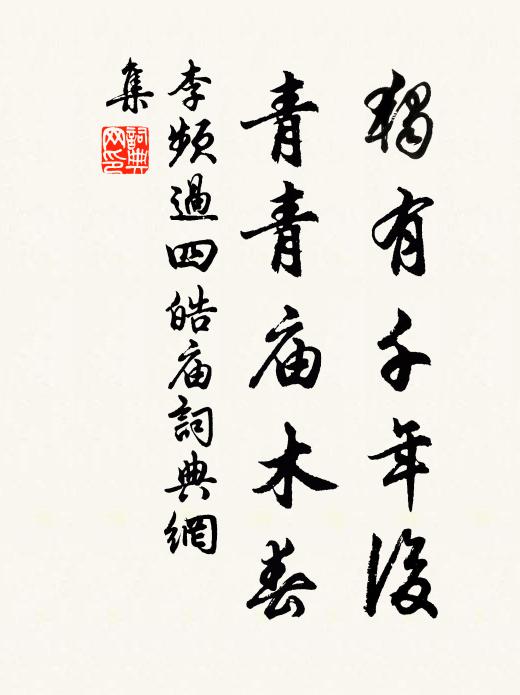 獨有千年後
青青庙木春
李頻過四皓庙詞典網
集
詞典網印